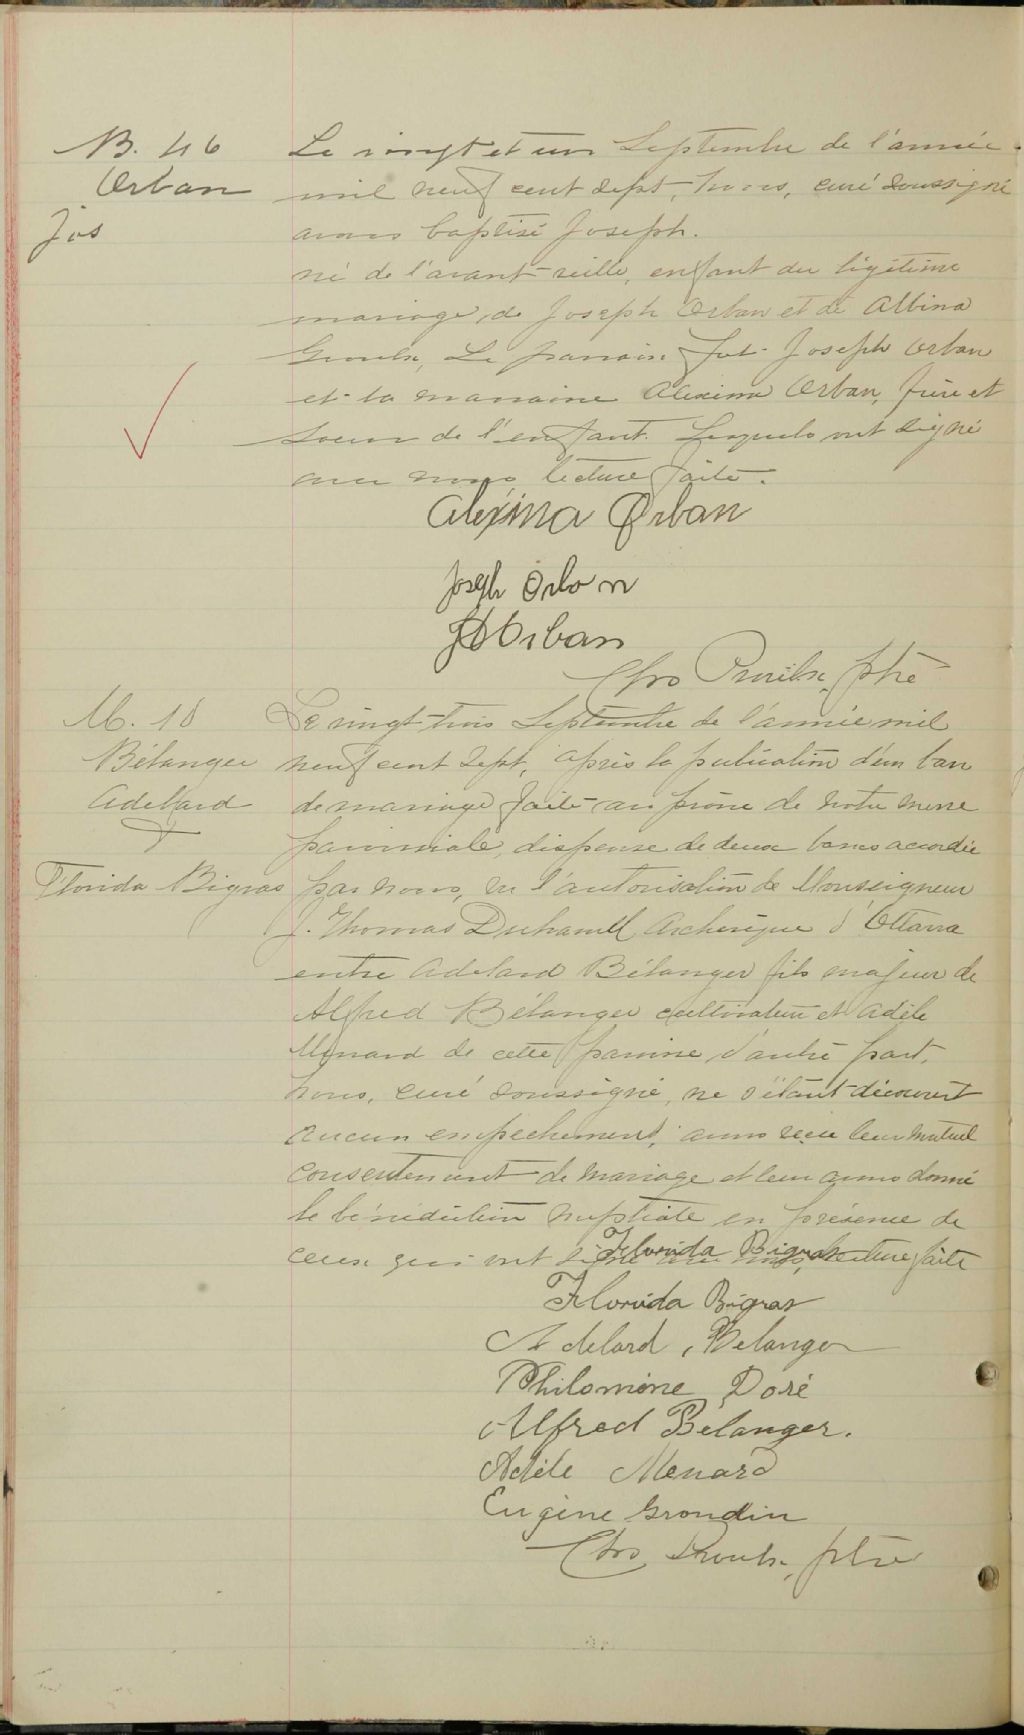 B. 46
Orban
Jos
Le vingt et un Septembre de l'année
mil neuf cent sept, nous, curé soussigné
avons baptisé Joseph.
né de l'avant-veille, enfant du légitime
mariage, de Joseph Orban et de Albina
Le parrain fut Joseph Orban
et la marraine Alexina Orban, frère et
soeur de l'enfant. Lesquels ont signé
avec nous, lecture faite.
Aléxina Orban
Joseph Orban
Orban
ptre
M. 10
Bélanger
Adélard
&
Florida Bigras
Le vingt-trois Septembre de l'année mil
neuf cent sept, après la publication d'un ban
de mariage faite au prône de notre messe
paroissiale, dispense de deux bans accordée
par nous, en l'autorisation de Monseigneur
J. Thomas Duhamel Archevêque d'Ottawa
entre Adelard Bélanger fils majeur de
Alfred Bélanger cultivateur et Adèle
Menard de cette paroisse, d'autre part,
nous, curé soussigné, ne s'étant découvert
aucun empêchement, avons reçu leur mutuel
consentement de mariage et leur avons donné
la bénédiction nuptiale en présence de
ceux qui ont signé avec nous, lecture faite
Florida Bigras
Florida Bigras
Adelard, Belanger
Philomène Doré
Alfred Bélanger.
Adèle Menard
Eugène Grondin
ptre